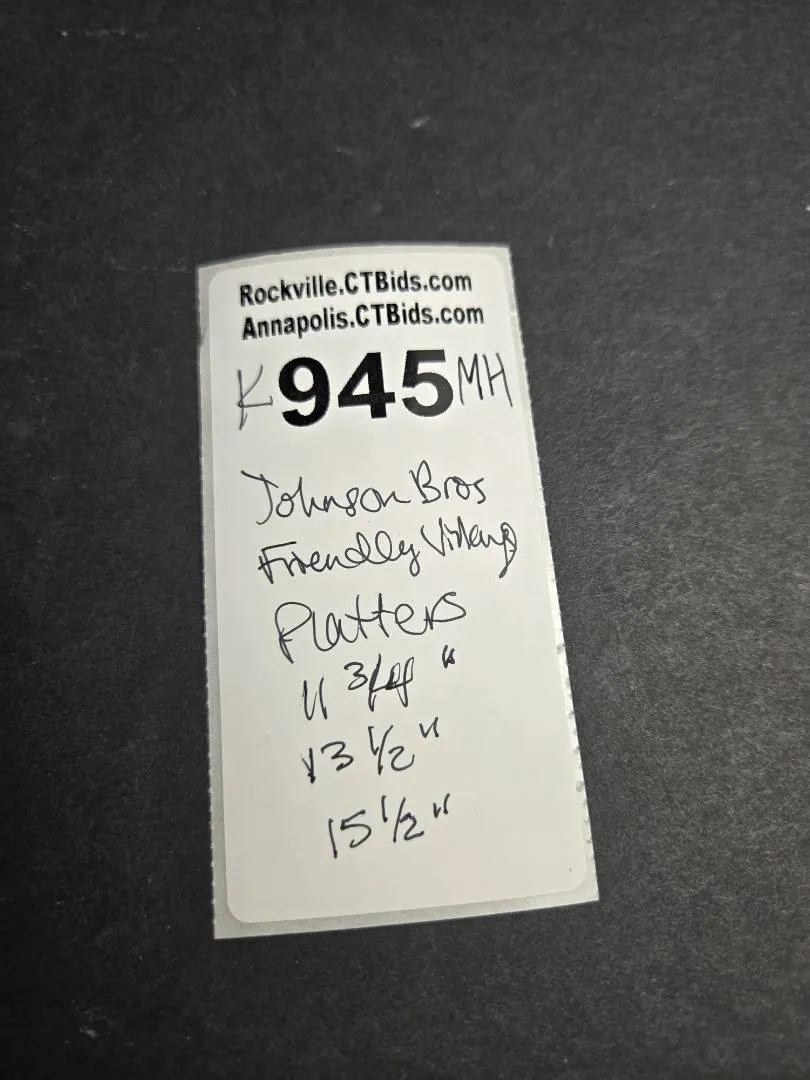 Rockville.CTBids.com
Annapolis.CTBids.com
K 945 MH
Johnson Bros
Friendly Village
Platters
11 3/4 "
13 1/2"
15 1/2"